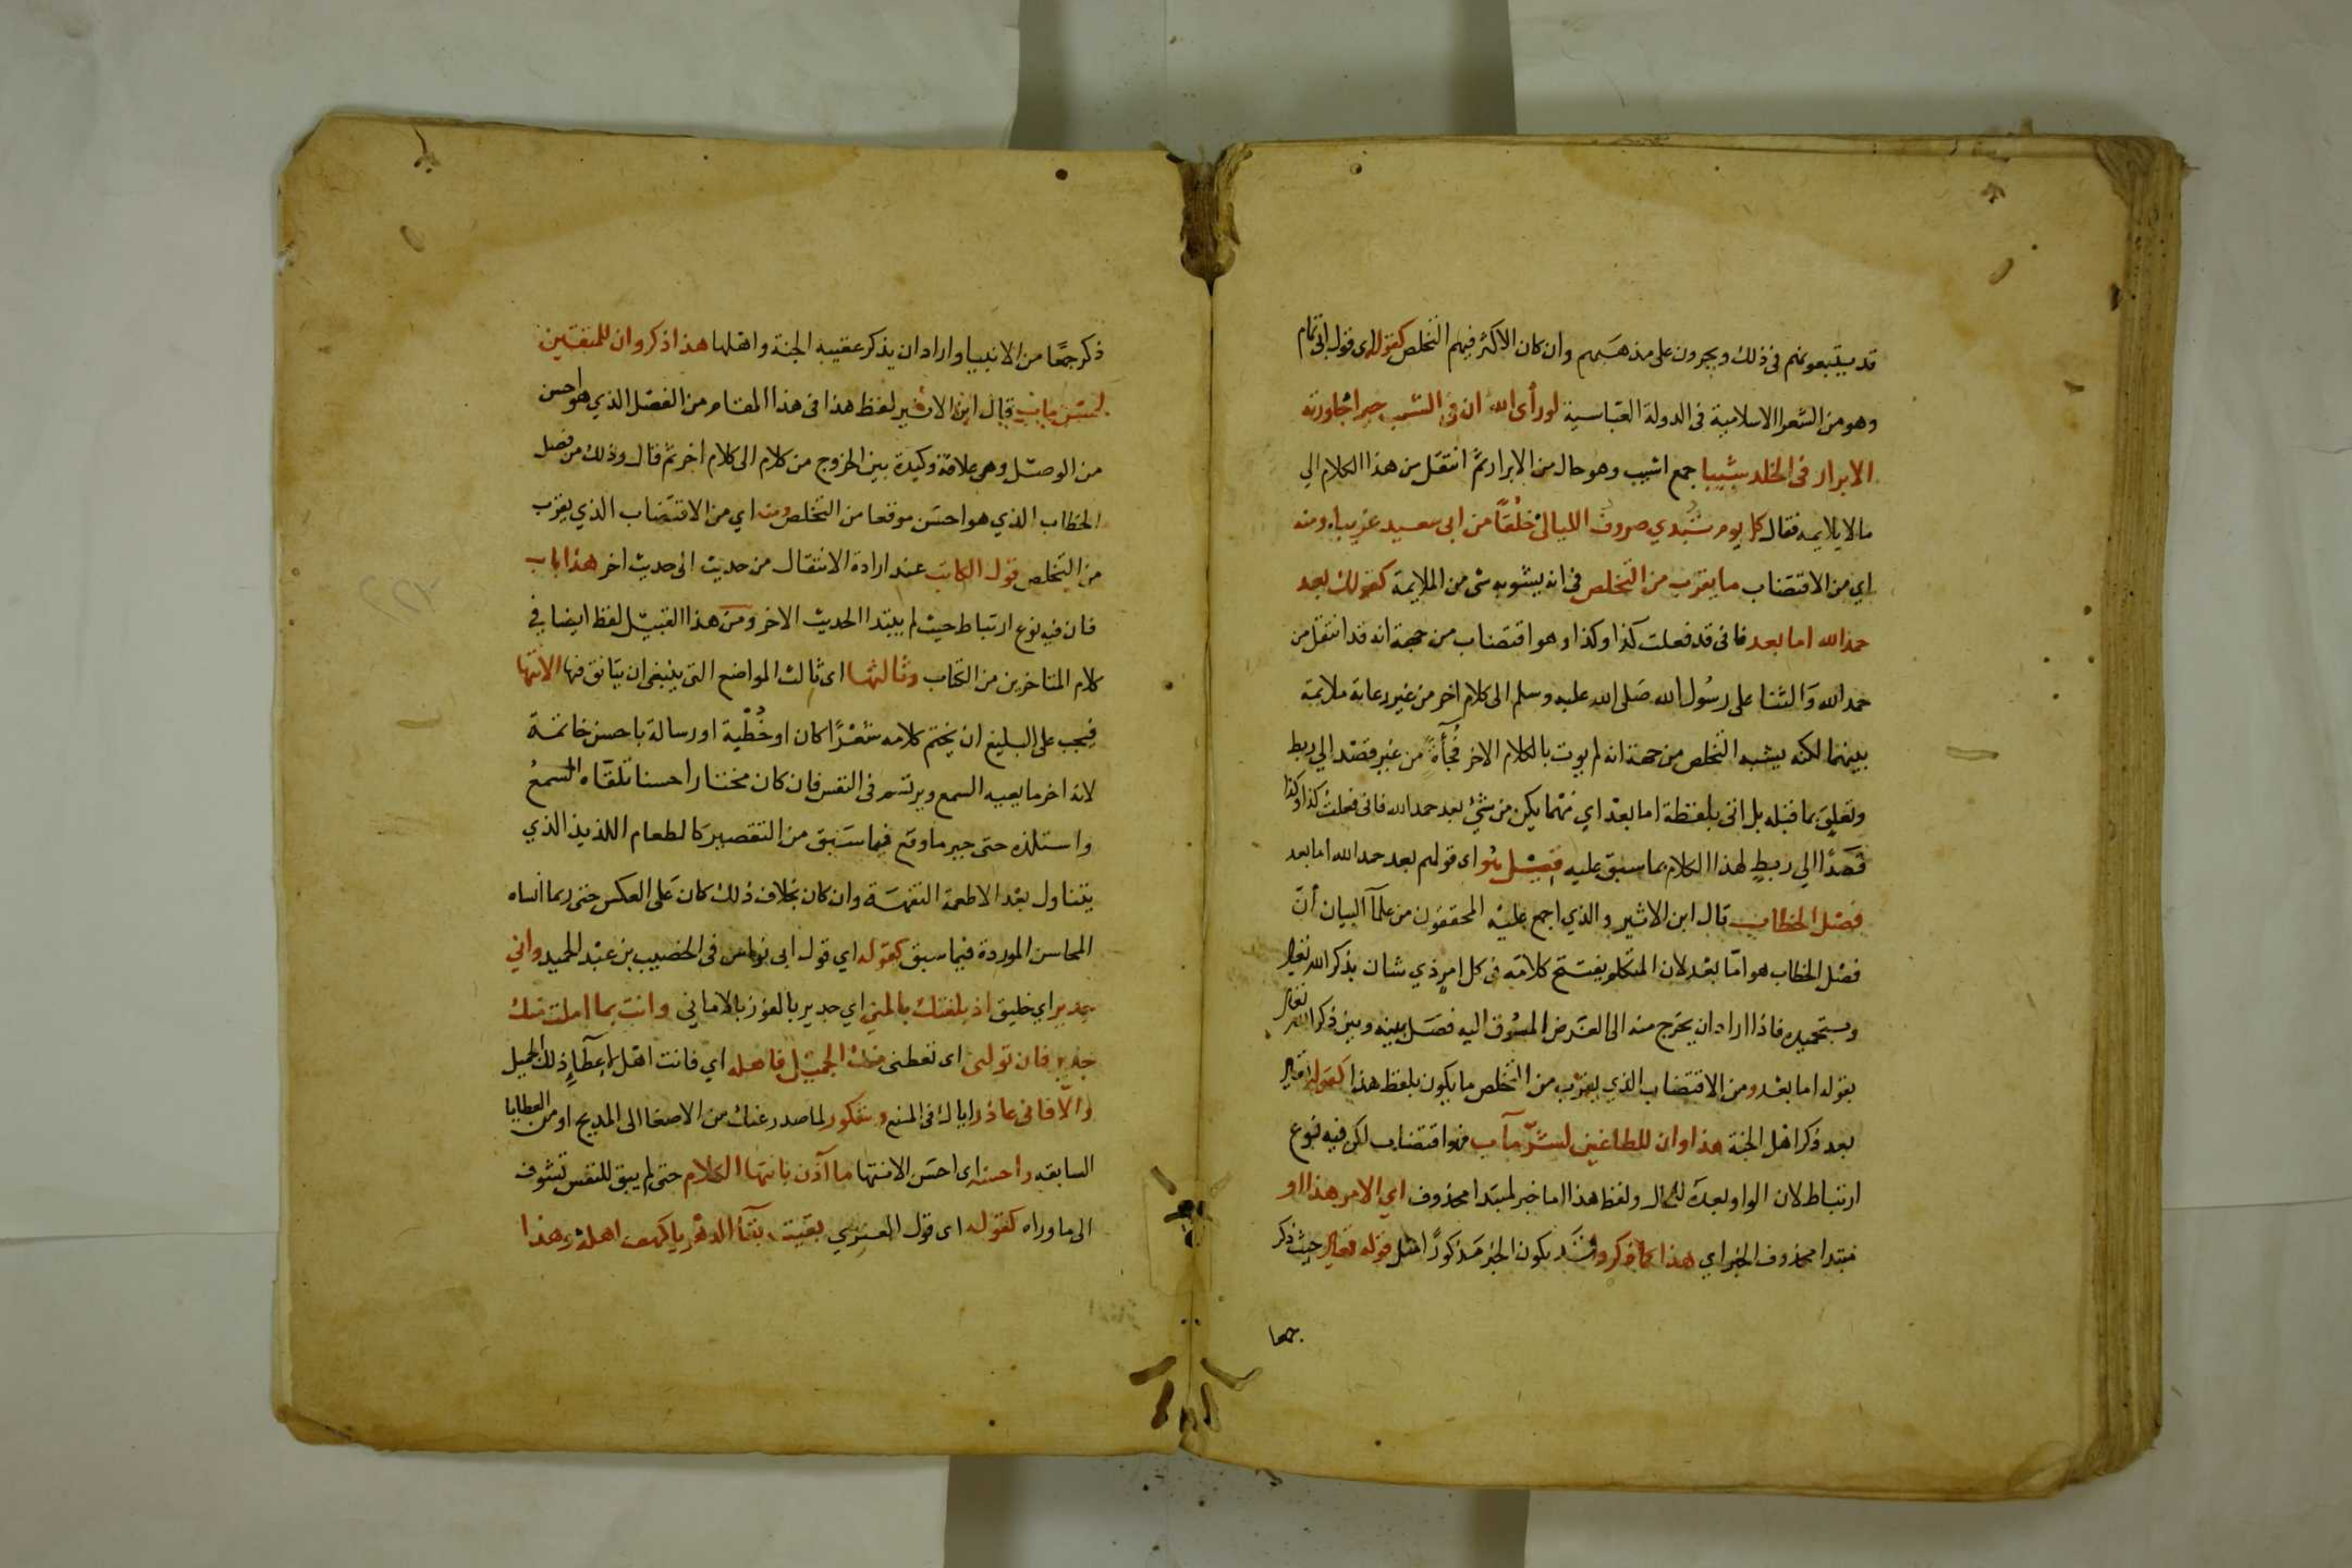 قد يتبعونهم في ذلك ويجرون على مذهبهم وان كان الاكثر فيهم التخلص كقوله اى قول ابى تمام
وهو من الشعرا الاسلامية فى الدولة العباسية لو رأى الله ان فى الشيب خيرا جاورته
الابرار فى الخلد شيبا جمع اشيب وهو حال من الابرار ثم انتقل من هذا الكلام الي
ما لا يلايمه فقال كل يوم تبدي صروف الليالى خلقا من ابى سعيد غريبا ومنه
اي من الاقتضاب ما يقرب من التخلص فى انه يشوبه شى من الملايمة كقولك بعد
حمد الله اما بعد فانى قد فعلت كذا وكذا وهو اقتضاب من جهة انه قد انتقل من
حمد الله والثنا على رسول الله صلى الله عليه وسلم الى كلام اخر من غير رعاية ملايمة
بينهما لكنه يشبه التخلص من جهة انه لم يوت بالكلام الاخر فجأة من غير قصد الي ربط
وتعليق بما قبله بل اتى بلفظة اما بعد اي مهما يكن من شئ بعد حمد الله فانى فعلت كذا وكذا
قصدا الي ربط لهذا الكلام بما سبق عليه قيل هو اى قولهم بعد حمد الله اما بعد
فصل الخطاب قال ابن الاثير والذي اجمع عليه المحققون من علمآ البيان أنّ
فصل الخطاب هو امّا بعد لان المتكلم يفتتح كلامه فى كل امر ذي شان بذكر الله تعالى
وبتحميده فاذا اراد ان يخرج منه الى الغرض المسوق اليه فصل بينه وبين ذكر الله تعالى
بقوله اما بعد ومن الاقتضاب الذي يقرب من التخلص ما يكون بلفظ هذا كقوله تعالى
بعد ذكر اهل الجنة هذا وان للطاغين لشرّ مآب فهو اقتضاب لكن فيه نوع
ارتباط لان الواو بعده للحال ولفظ هذا اما خبر لمبتدا محذوف اي الامر هذا او
مبتدا محذوف الخبر اي هذا كما ذكر وقد يكون الخبر مذكورًا مثل قوله تعالى حيث ذكر
جمعا
ذكر جمعًا من الانبيا واراد ان يذكر عقيبه الجنة واهلها هذا ذكر وان للمتقين
لحسن مآب قال ابن الاثير لفظ هذا فى هذا المقام من الفصل الذي هو احسن
من الوصل وهى علاقة وكيدة بين الخروج من كلام الى كلام اخر ثم قال وذلك من فصل
الخطاب الذي هو احسن موقعا من التخلص ومنه اي من الاقتضاب الذي يقرب
من التخلص قول الكاتب عند ارادة الانتقال من حديث الى حديث اخر هذا باب
فان فيه نوع ارتباط حيث لم يبتدا الحديث الاخر ومن هذا القبيل لفظ ايضا في
كلام المتاخرين من الكتاب وثالثها اى ثالث المواضع التى ينبغى ان يتانق فيها الانتها
فيجب على البليغ ان يختم كلامه شعرًا كان او خطبة او رسالة باحسن خاتمة
لانه اخر ما يعيه السمع ويرتسم فى النفس فان كان مختارا حسنا تلقّاه السمع
واستلذه حتى جبر ما وقع فيما سبق من التقصير كالطعام اللذيذ الذي
يتناول بعد الاطعمة التفهة وان كان بخلاف ذلك كان على العكس حتى ربما انساه
المحاسن الموردة فيما سبق كقوله اي قول ابى نواس فى الخصيب بن عبد الحميد واني
جدير اي خليق اذ بلغتك بالمنى اي جدير بالفوز بالاماني وانت بما املت منك
جدير فان تولنى اى تعطنى منك الجميل فاهله اي فانت اهل لاعطآ ذلك الجميل
والّا فانى عاذر اياك فى المنع وشكور لما صدر عنك من الاصغا الى المديح او من العطايا
السابقه واحسنه اى احسن الانتها ما آذن بانتها الكلام حتى لم يبق للنفس تشوف
الى ما وراه كقوله اى قول المعري بقيت بقآ الدهر يا كهف اهله وهذا